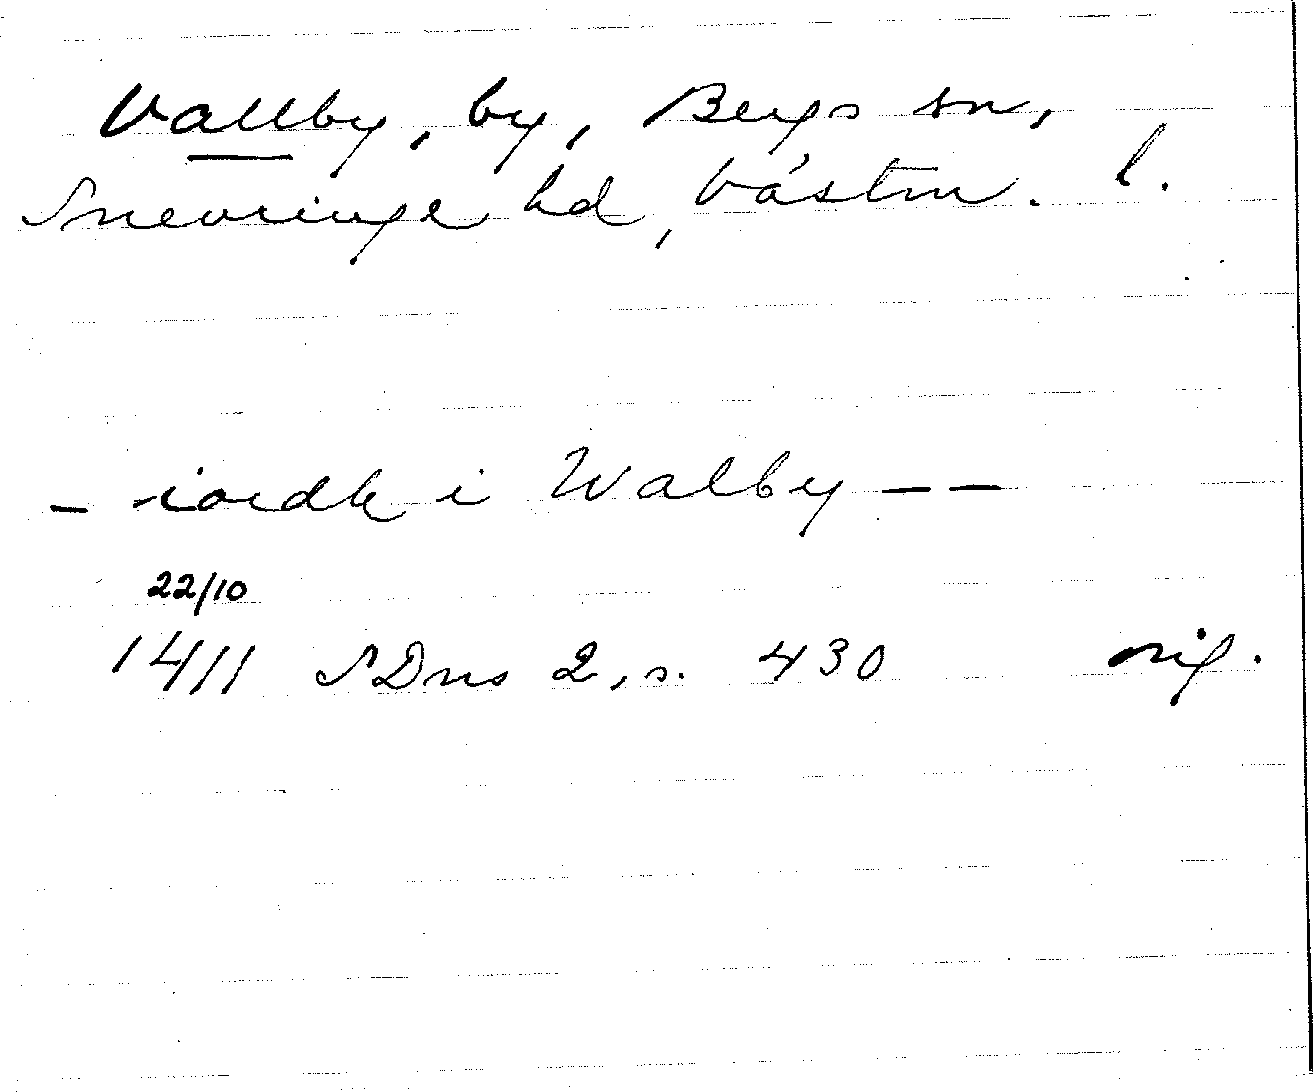 Vallby, by, Bergs sn,
Snevringe hd, Västm. l.
- iordh i Walby - -
22/10
1411 SDns 2, s. 430 orig.